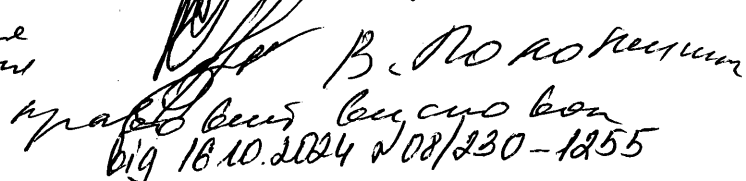 В. Полонник
правовий висновок
від 16.10.2024 №08/230-1255